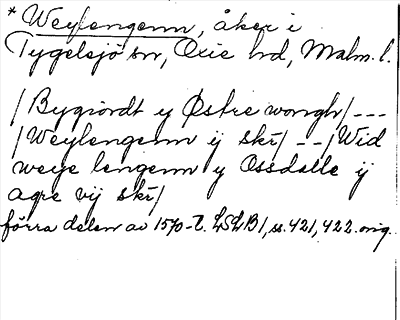 * Weylengenn, åker i
Tygelsjö sn, Oxie hd, Malm. l.
/Bygiordt y Østre wongh/ ---
/Weylengenn ij skr/ -- /Wid
weye lengenn y Ossdalle ij
agre vij skr/
förra delen av 1570-t. LSLB1, ss. 421, 422. orig.